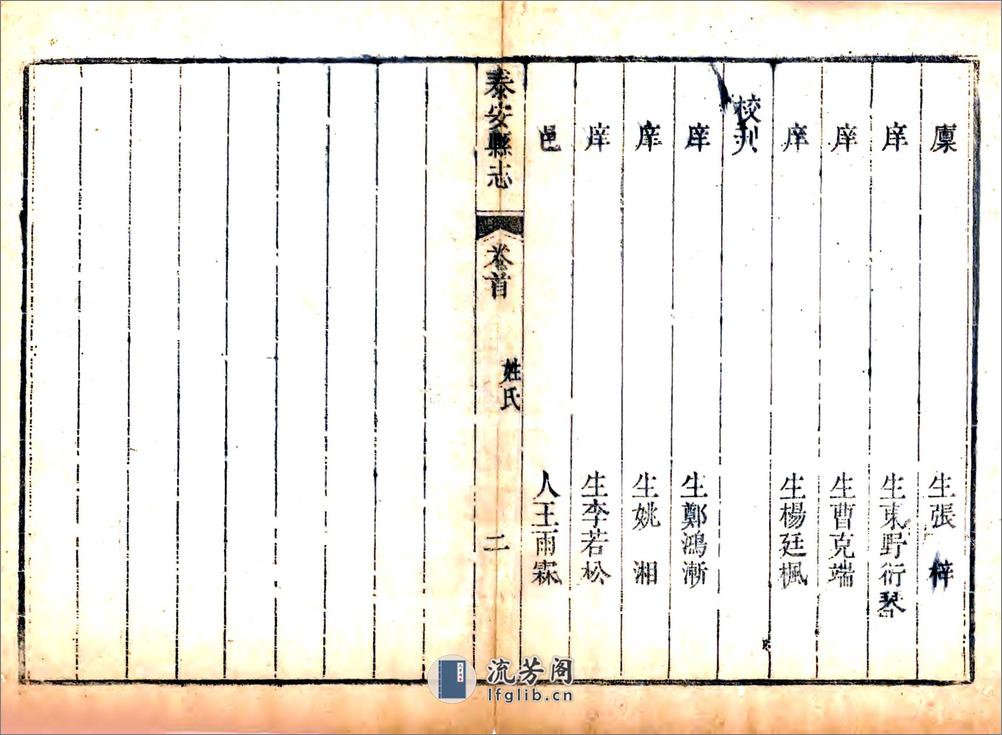 廩生張梓
庠生東野衍琴
庠生曹克端
庠生楊廷楓
校刋
庠生鄭鴻漸
庠生姚湘
庠生李若松
邑人王雨霖
泰安縣志 卷首 姓氏 二
流芳阁
lfglib.cn